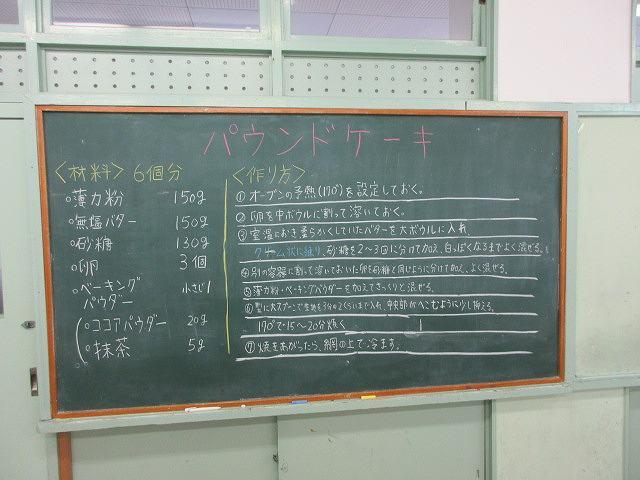 パウンドケーキ
<材料> 6個分
○薄力粉 150g
○無塩バター 150g
○砂糖 130g
○卵 3個
○ベーキングパウダー 小さじ1
○ココアパウダー 20g
○抹茶 5g
<作り方>
①オーブンの予熱(170°)を設定しておく。
②卵を中ボウルに割って溶いておく。
③室温におき柔らかくしていたバターを大ボウルに入れ
クリーム状に練り、砂糖を2〜3回に分けて加え、白っぽくなるまでよく混ぜる。
④別の容器に割って溶いておいた卵を砂糖と同じように分けて加え、よく混ぜる。
⑤薄力粉・ベーキングパウダーを加えてさっくりと混ぜる。
⑥型に大スプーンで生地を3分の2くらいまで入れ、中央部がへこむように少し抑える。
170°で15〜20分焼く
⑦焼きあがったら、網の上で冷ます。